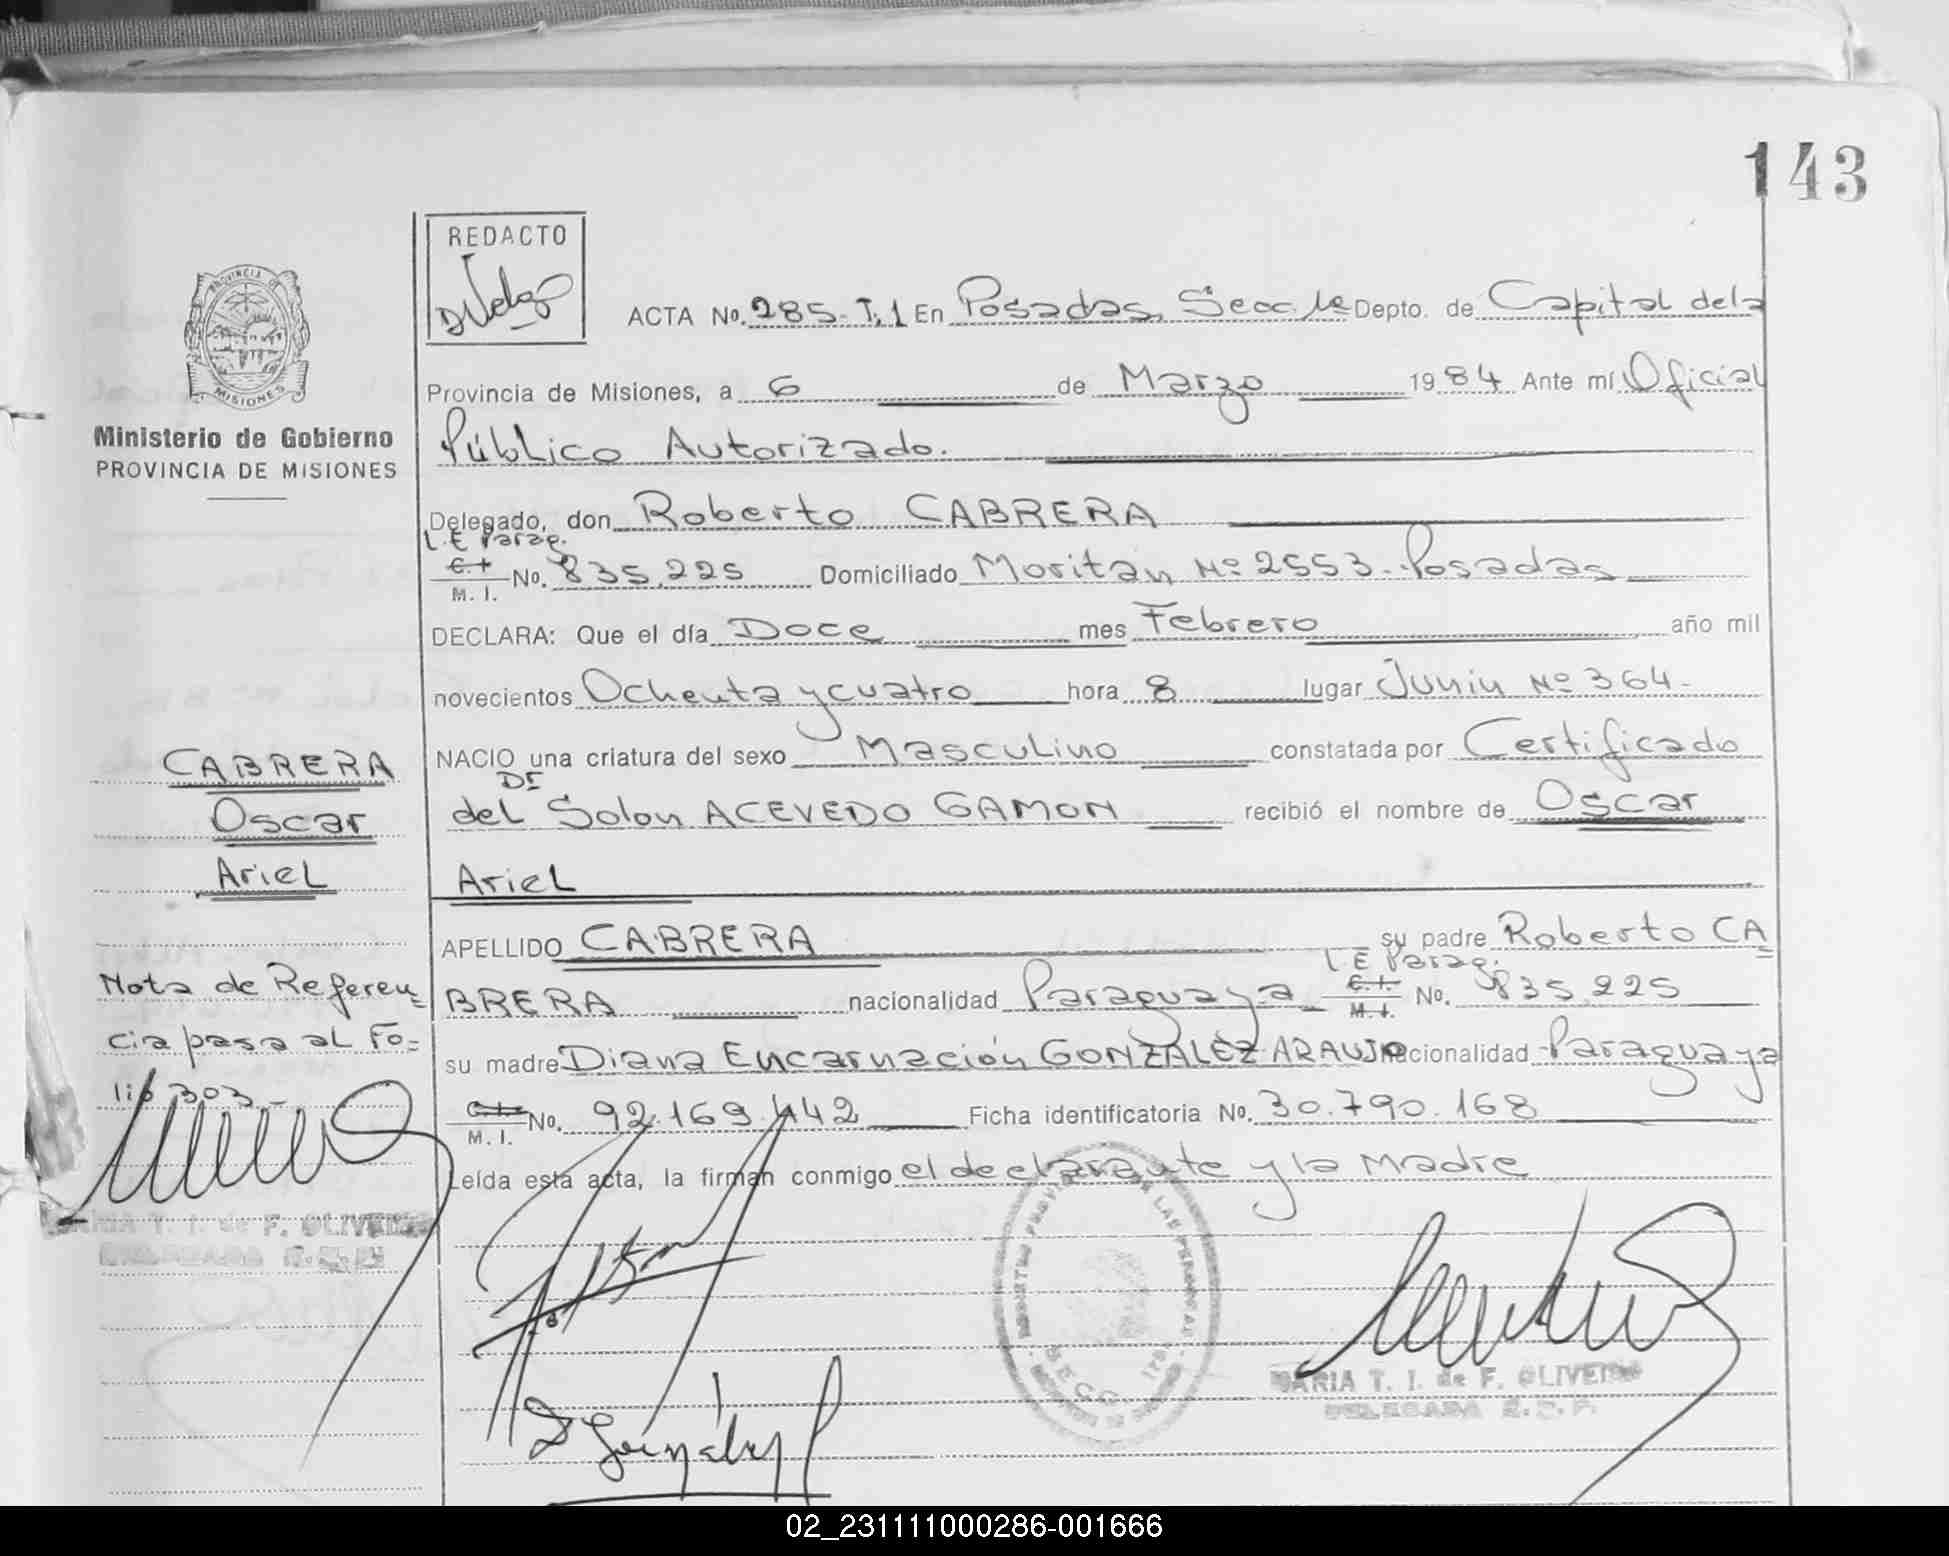 143
REDACTO
PROVINCIA DE
MISIONES
Ministerio de Gobierno
PROVINCIA DE MISIONES
ACTA No. 285. T.1 En Posadas, Secc. 1a Depto. de Capital de la
Provincia de Misiones, a 6 de Marzo 1984 Ante mí Oficial
Público Autorizado.
Delegado, don Roberto CABRERA
L.E Parag.
C.I. M. I. No. 835.225 Domiciliado Moritán Nº 2553. Posadas
DECLARA: Que el día Doce mes Febrero año mil
novecientos Ochenta y cuatro hora 8 lugar Junín Nº 364-
NACIO una criatura del sexo Masculino constatada por Certificado
DE
del Solon ACEVEDO GAMON recibió el nombre de Oscar
Ariel
APELLIDO CABRERA su padre Roberto CA
L.E Parag.
BRERA nacionalidad Paraguaya C.I. M. I. No. 835.225
su madre Diana Encarnación GONZALEZ ARAUJO nacionalidad Paraguaya
C.I. M. I. No. 92.169.442 Ficha identificatoria No. 30.790.168
Leída esta acta, la firman conmigo el declarante y la Madre
CABRERA
Oscar
Ariel
Nota de Referen-
cia pasa al Fo=
lio 303-
MARIA T. I. de F. OLIVEIRA
DELEGADA R.C.P.
MARIA T. I. de F. OLIVEIRA
DELEGADA R.C.P.
02_231111000286-001666